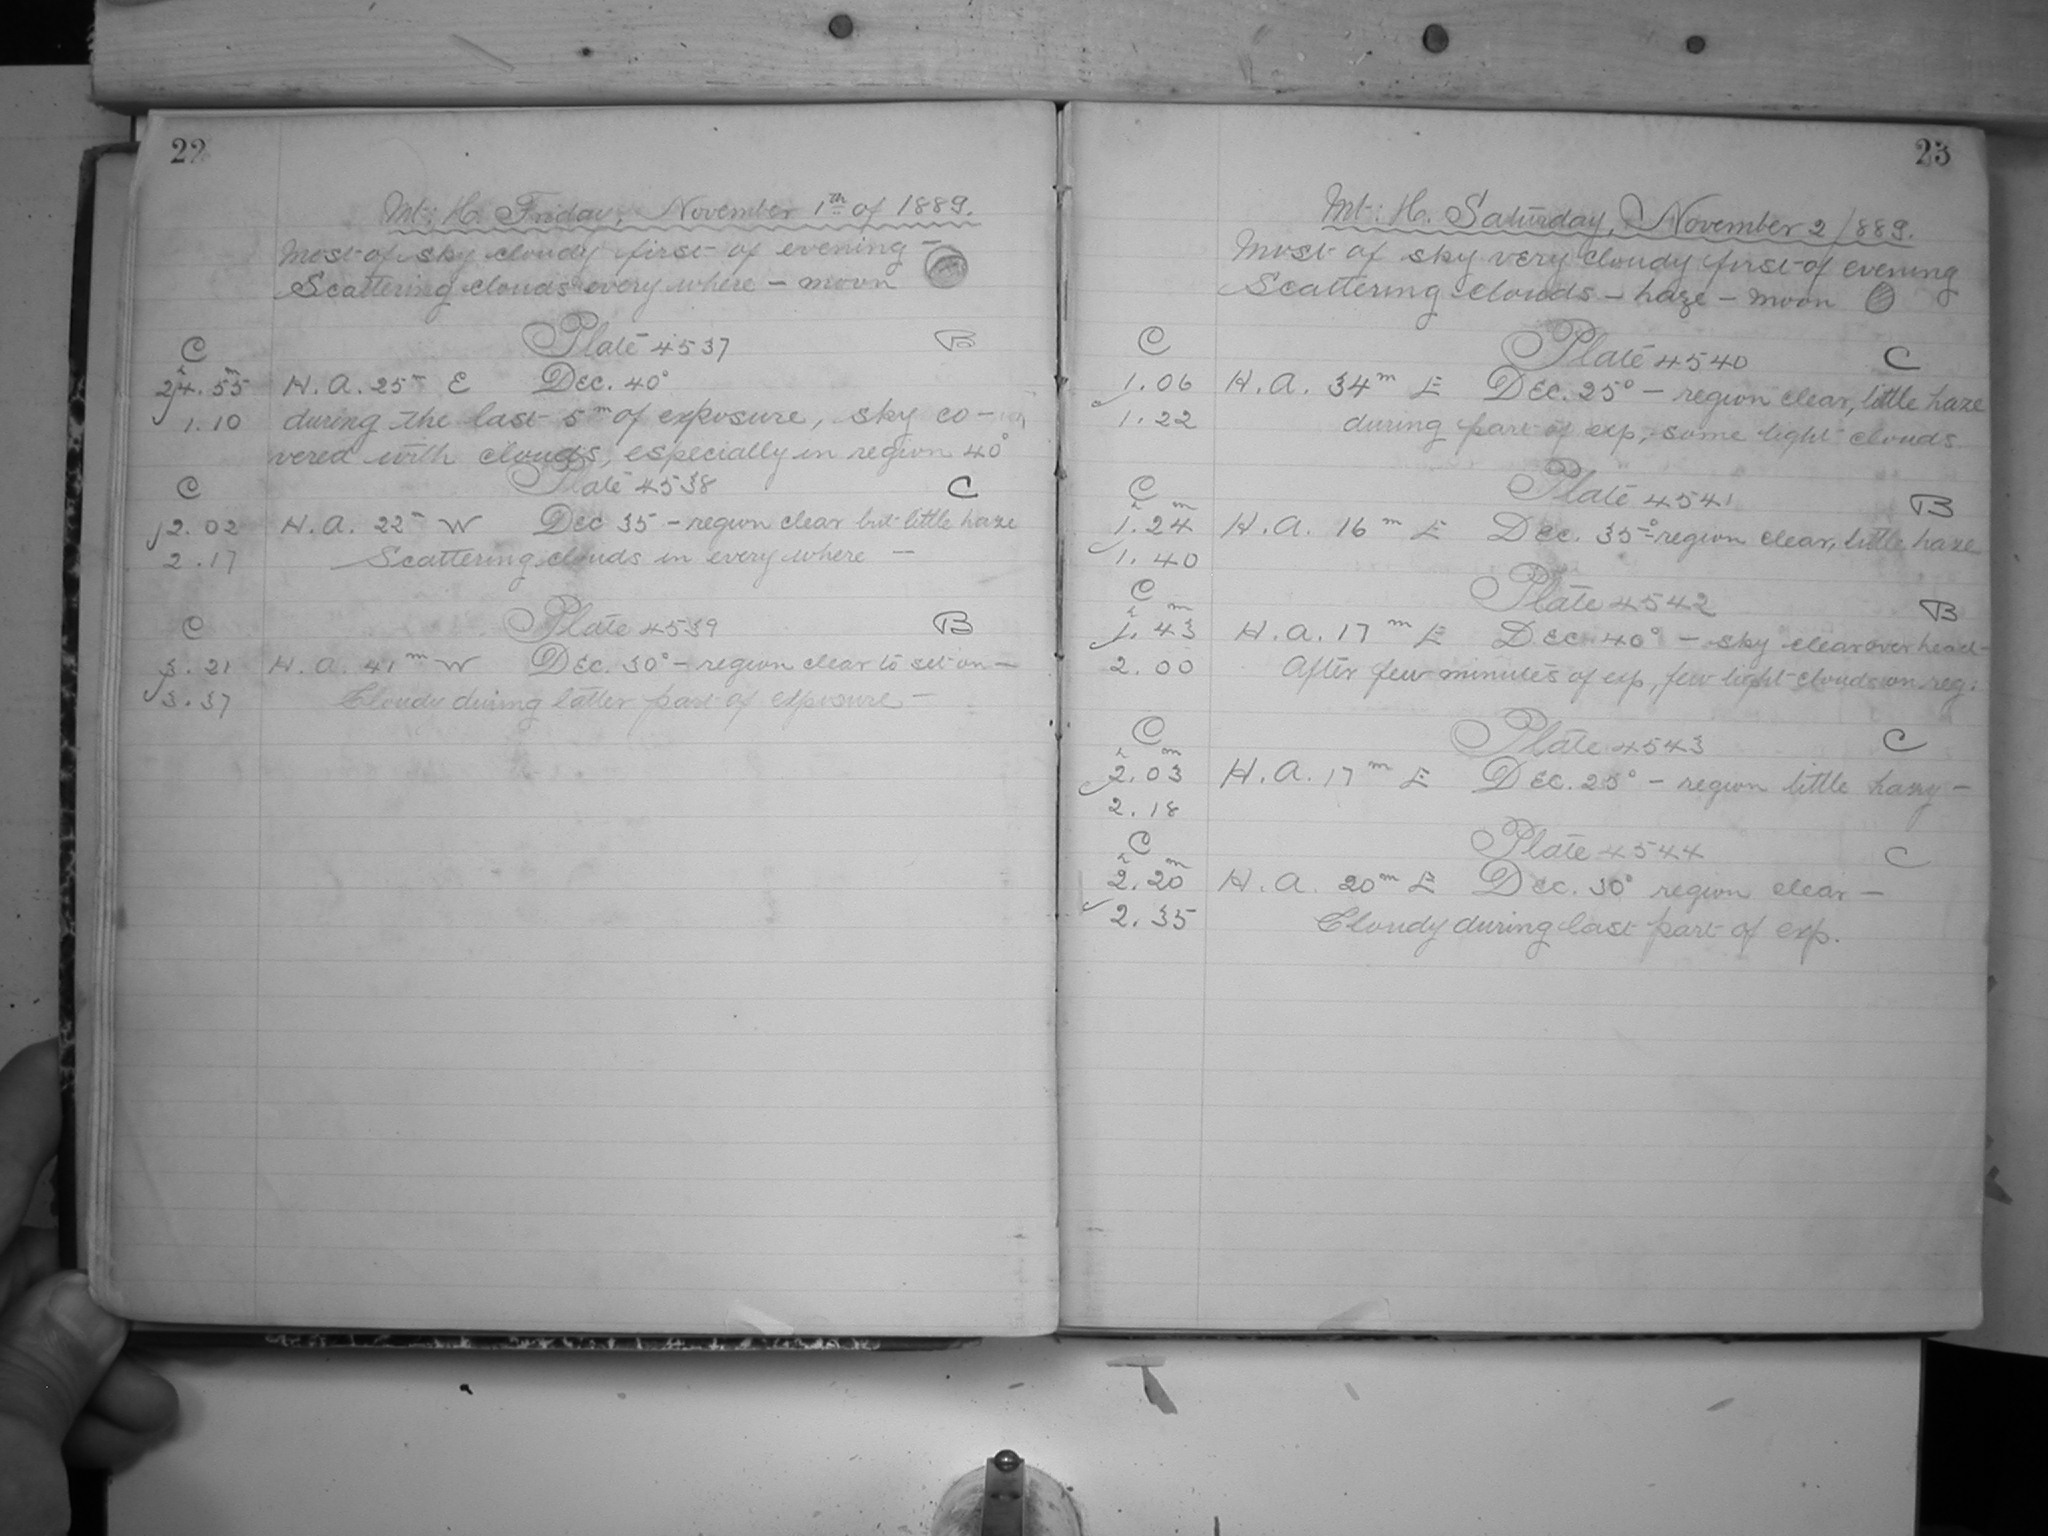 22
Mt: H. Friday, November 1th of 1889.
Most of sky cloudy first of evening —
Scattering clouds every where — moon
C Plate 4537 B
24h.55m H.A. 25m E Dec. 40°
1.10 during the last 5m of exposure, sky co-
vered with clouds, especially in region 40°
C Plate 4538 C
2.02 H.A. 22m W Dec 35 — region clear but little haze
2.17 Scattering clouds in every where —
C Plate 4539 B
3.21 H.A. 41m W Dec. 30° — region clear to set on —
3.37 Cloudy during latter part of exposure —
23
Mt: H. Saturday, November 2 1889.
Most of sky very cloudy first of evening
Scattering clouds — haze — moon
C Plate 4540 C
1.06 H.A. 34m E Dec. 25° — region clear, little haze
1.22 during part of exp, some light clouds
C Plate 4541 B
1h.24m H.A. 16m E Dec. 35° — region clear, little haze
1.40
C Plate 4542 B
1h.43m H.A. 17m E Dec. 40° — sky clear over head —
2.00 After few minutes of exp, few light clouds on reg:
C Plate 4543 C
2h.03m H.A. 17m E Dec. 25° — region little hazy —
2.18
C Plate 4544 C
2h.20m H.A. 20m E Dec. 30° region clear —
2.35 Cloudy during last part of exp.